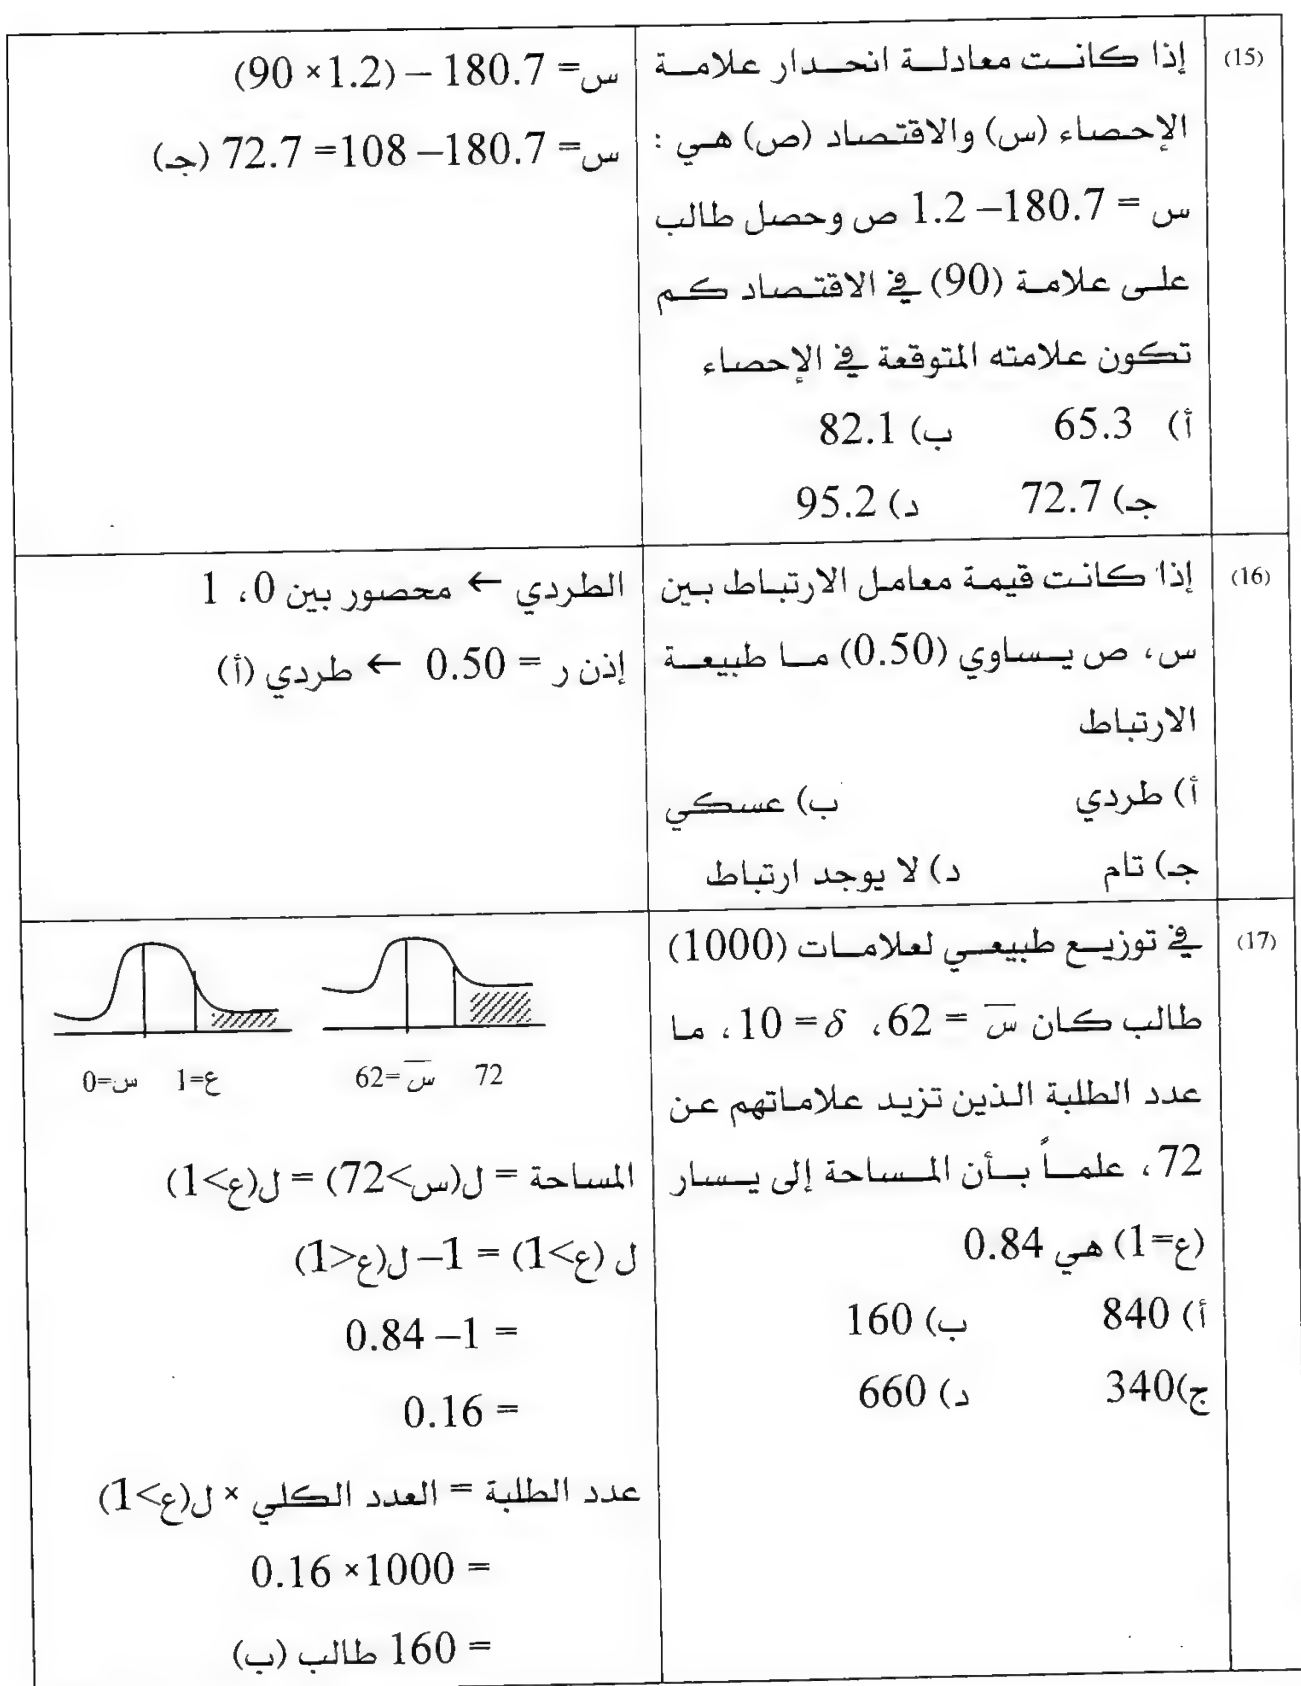 (15)
إذا كانت معادلة انحدار علامة
الإحصاء (س) والاقتصاد (ص) هي :
س = 180.7– 1.2 ص وحصل طالب
على علامة (90) في الاقتصاد كم
تكون علامته المتوقعة في الإحصاء
أ) 65.3 ب) 82.1
جـ) 72.7 د) 95.2
س= 180.7 – (1.2× 90)
س= 180.7–108= 72.7 (جـ)
(16)
إذا كانت قيمة معامل الارتباط بين
س، ص يساوي (0.50) ما طبيعة
الارتباط
أ) طردي ب) عسكي
جـ) تام د) لا يوجد ارتباط
الطردي ← محصور بين 0، 1
إذن ر = 0.50 ← طردي (أ)
(17)
في توزيع طبيعي لعلامات (1000)
طالب كان س̅ = 62، δ= 10، ما
عدد الطلبة الذين تزيد علاماتهم عن
72، علماً بأن المساحة إلى يسار
(ع=1) هي 0.84
أ) 840 ب) 160
ج)340 د) 660
72 س̅=62 ع=1 س=0
المساحة = ل(س>72) = ل(ع>1)
ل (ع>1) = 1– ل(ع<1)
= 1– 0.84
= 0.16
عدد الطلبة = العدد الكلي × ل(ع>1)
= 1000× 0.16
= 160 طالب (ب)